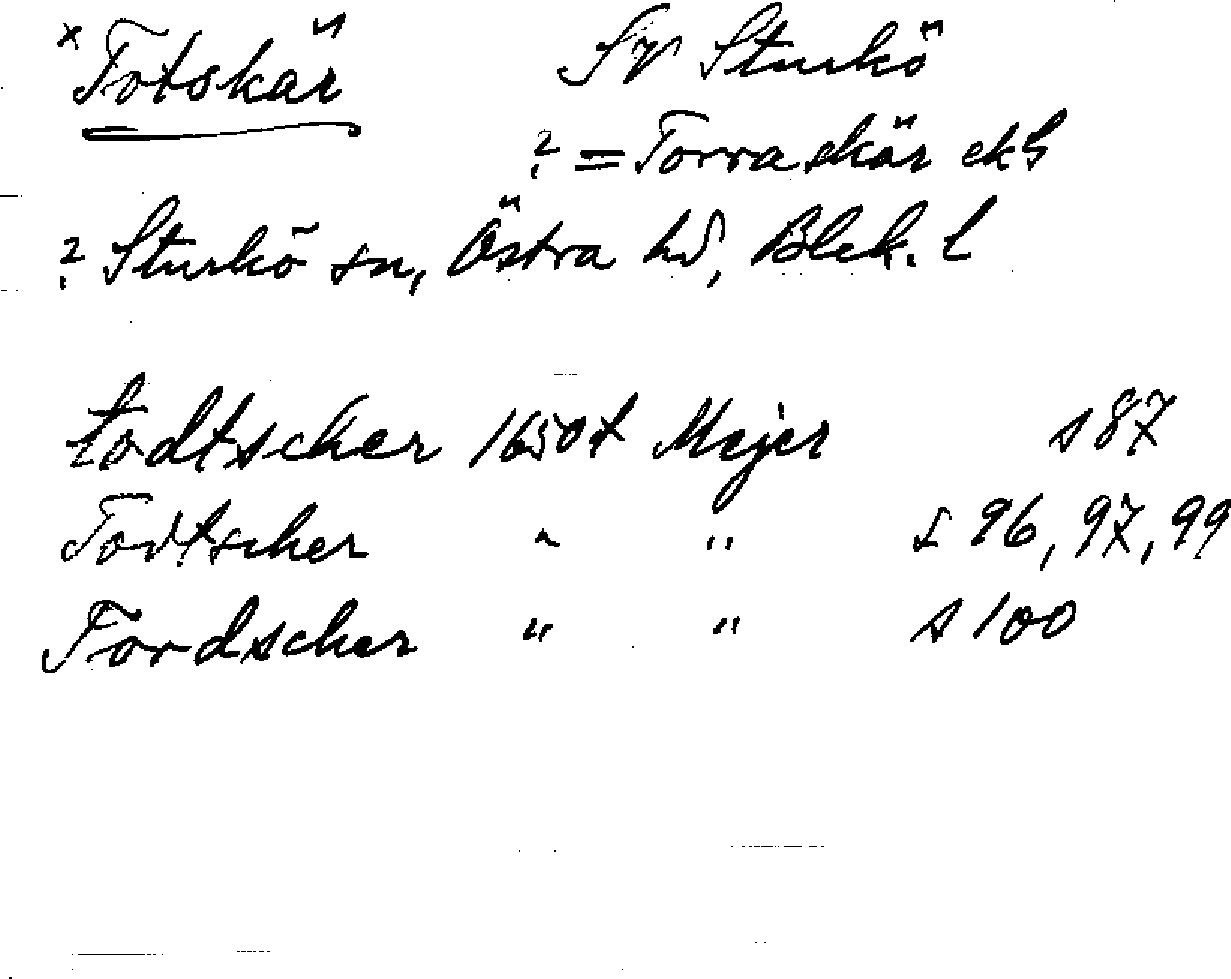 x Totskär SV Sturkö
? = Torraskär ekS
? Sturkö sn, Östra hd, Blek. l
todtscher 1650t Mejer s 87
Todtscher " " s 96, 97, 99
Tordscher " " s 100